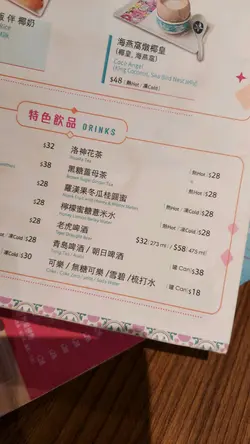 飯 伴 椰奶
海燕窩燉椰皇
(椰皇, 海燕窩)
Coco Angel
(King Coconut, Sea Bird Nest Jelly)
$48 (熱Hot / 凍Cold)
特色飲品 DRINKS
$32 洛神花茶 熱Hot / 凍Cold $28
Roselle Tea
$38 黑糖薑母茶 熱Hot $28
Brown Sugar Ginger Tea
$28 羅漢果冬瓜桂圓蜜 熱Hot / 凍Cold $28
$28 檸檬蜜糖薏米水 熱Hot / 凍Cold $28
Honey Lemon Barley Water
$28 老虎啤酒 $32 (273 ml) / $58 (473 ml)
Tiger Draught Beer
凍Cold $28 青島啤酒 / 朝日啤酒 罐 Can $38
Tsing Tao / Asahi
凍Cold $30 可樂 / 無糖可樂 / 雪碧 / 梳打水 罐 Can $18
Coke / Coke Zero / Sprite / Soda Water